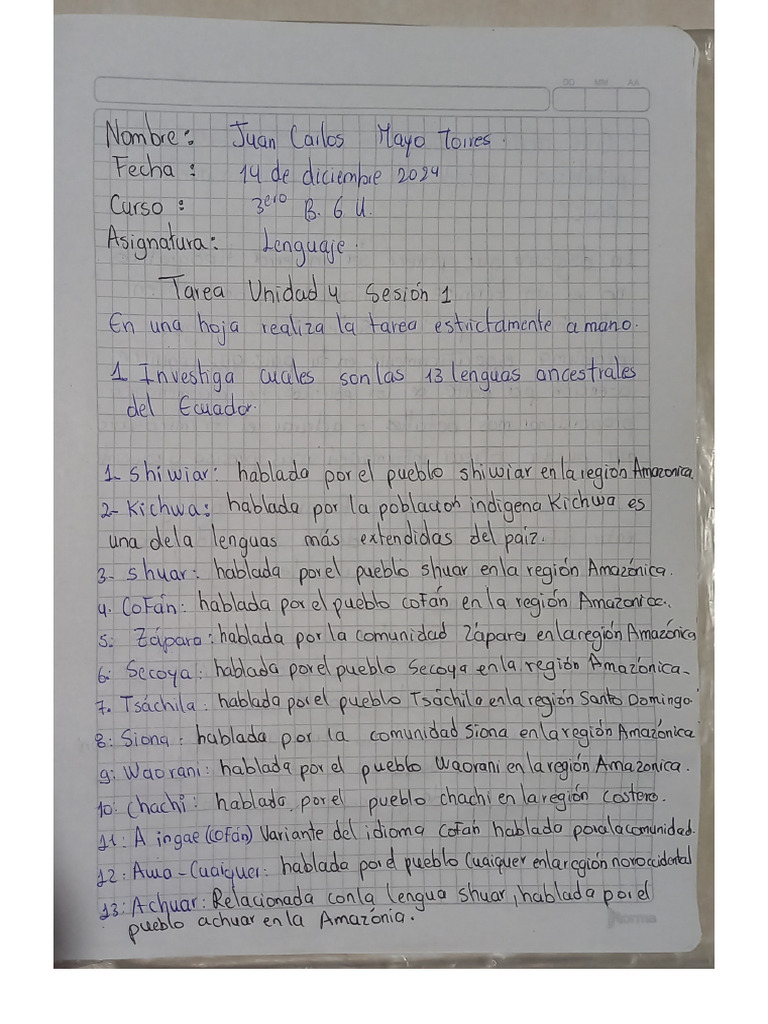 DD MM AA
Nombre: Juan Carlos Mayo Torres.
Fecha: 14 de diciembre 2024
Curso: 3ero B. G U.
Asignatura: Lenguaje.
Tarea Unidad 4 Sesión 1
En una hoja realiza la tarea estrictamente a mano.
1. Investiga cuales son las 13 lenguas ancestrales
del Ecuador.
1- Shiwiar: hablada por el pueblo shiwiar en la región Amazonica.
2- Kichwa: hablada por la poblacion indigena Kichwa es
una dela lenguas más extendidas del paiz.
3- shuar: hablada por el pueblo shuar en la región Amazónica.
4. Cofán: hablada por el pueblo cofán en la región Amazonica.
5: Zápara: hablada por la comunidad Zápara en la región Amazónica
6: Secoya: hablada por el pueblo Secoya en la región Amazónica-
7. Tsáchila: hablada por el pueblo Tsáchila en la región Santo Domingo.
8: Siona: hablada por la comunidad Siona en la región Amazónica
9: Waorani: hablada por el pueblo Waorani en la región Amazonica.
10: Chachi: hablada por el pueblo chachi en la región costera.
11: A ingae (cofán) Variante del idioma cofán hablado por la comunidad.
12: Awa-Cuaiquer: hablada por el pueblo Cuaiquer en la región noroccidental
13: Achuar: Relacionada con la lengua shuar, hablada por el
pueblo achuar en la Amazónia.
Norma